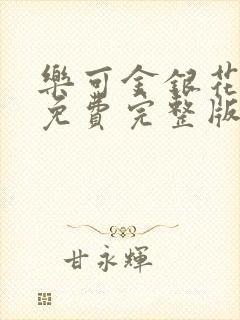 樂可金銀花
免費完整版
甘永輝